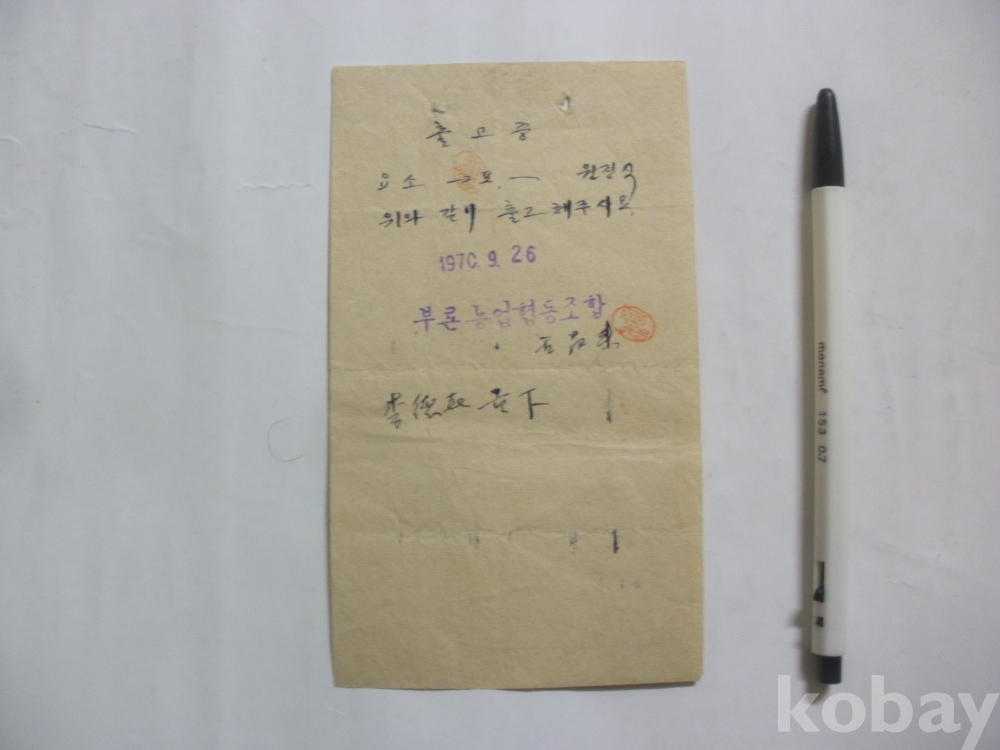 출고증
요소 二포 一 원정수
위와 같이 출고해주시요.
1970. 9. 26
부론농업협동조합
李德 귀下
monami 153 0.7
kobay